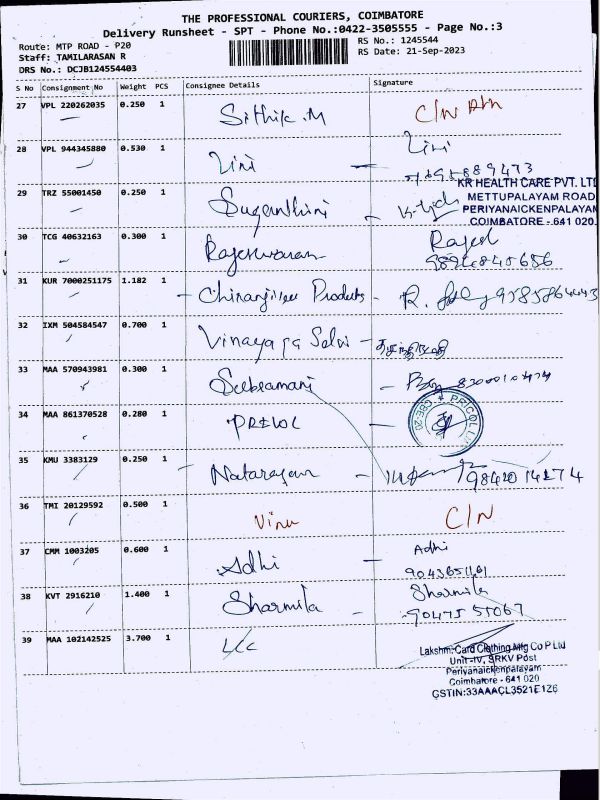 THE PROFESSIONAL COURIERS, COIMBATORE
Delivery Runsheet - SPT - Phone No.:0422-3505555 - Page No.:3
Route: MTP ROAD - P20
RS No.: 1245544
Staff: TAMILARASAN R
RS Date: 21-Sep-2023
DRS No.: DCJB124554403
S No Consignment No Weight PCS Consignee Details Signature
27 VPL 220262035 0.250 1 Sithik.M C/N
28 VPL 944345880 0.530 1 Lini Lini
KR HEALTH CARE PVT. LTD
29 TRZ 55001450 0.250 1 Suganthini
METTUPALAYAM ROAD
PERIYANAICKENPALAYAM
COIMBATORE - 641 020.
30 TCG 40632163 0.300 1 Rajeswaran Rajesh
31 KUR 7000251175 1.182 1 - Chiranjilee Products - R.
32 IXM 504584547 0.700 1 Vinayaga Selvi -
33 MAA 570943981 0.300 1 Subramani -
34 MAA 861370528 0.280 1 PRICOL
35 KMU 3383129 0.250 1 - Natarajan - 9842014274
36 TMI 20129592 0.500 1 Vinu C/N
37 CMM 1003205 0.600 1 Adhi - Adhi
9043651101
38 KVT 2916210 1.400 1 Sharmila - Sharmila
9047555067
39 MAA 102142525 3.700 1
Lakshmi Card Clothing Mfg Co P Ltd
Unit -IV, SRKV Post
Periyanaickenpalayam
Coimbatore - 641 020
GSTIN:33AAACL3521E1Z6